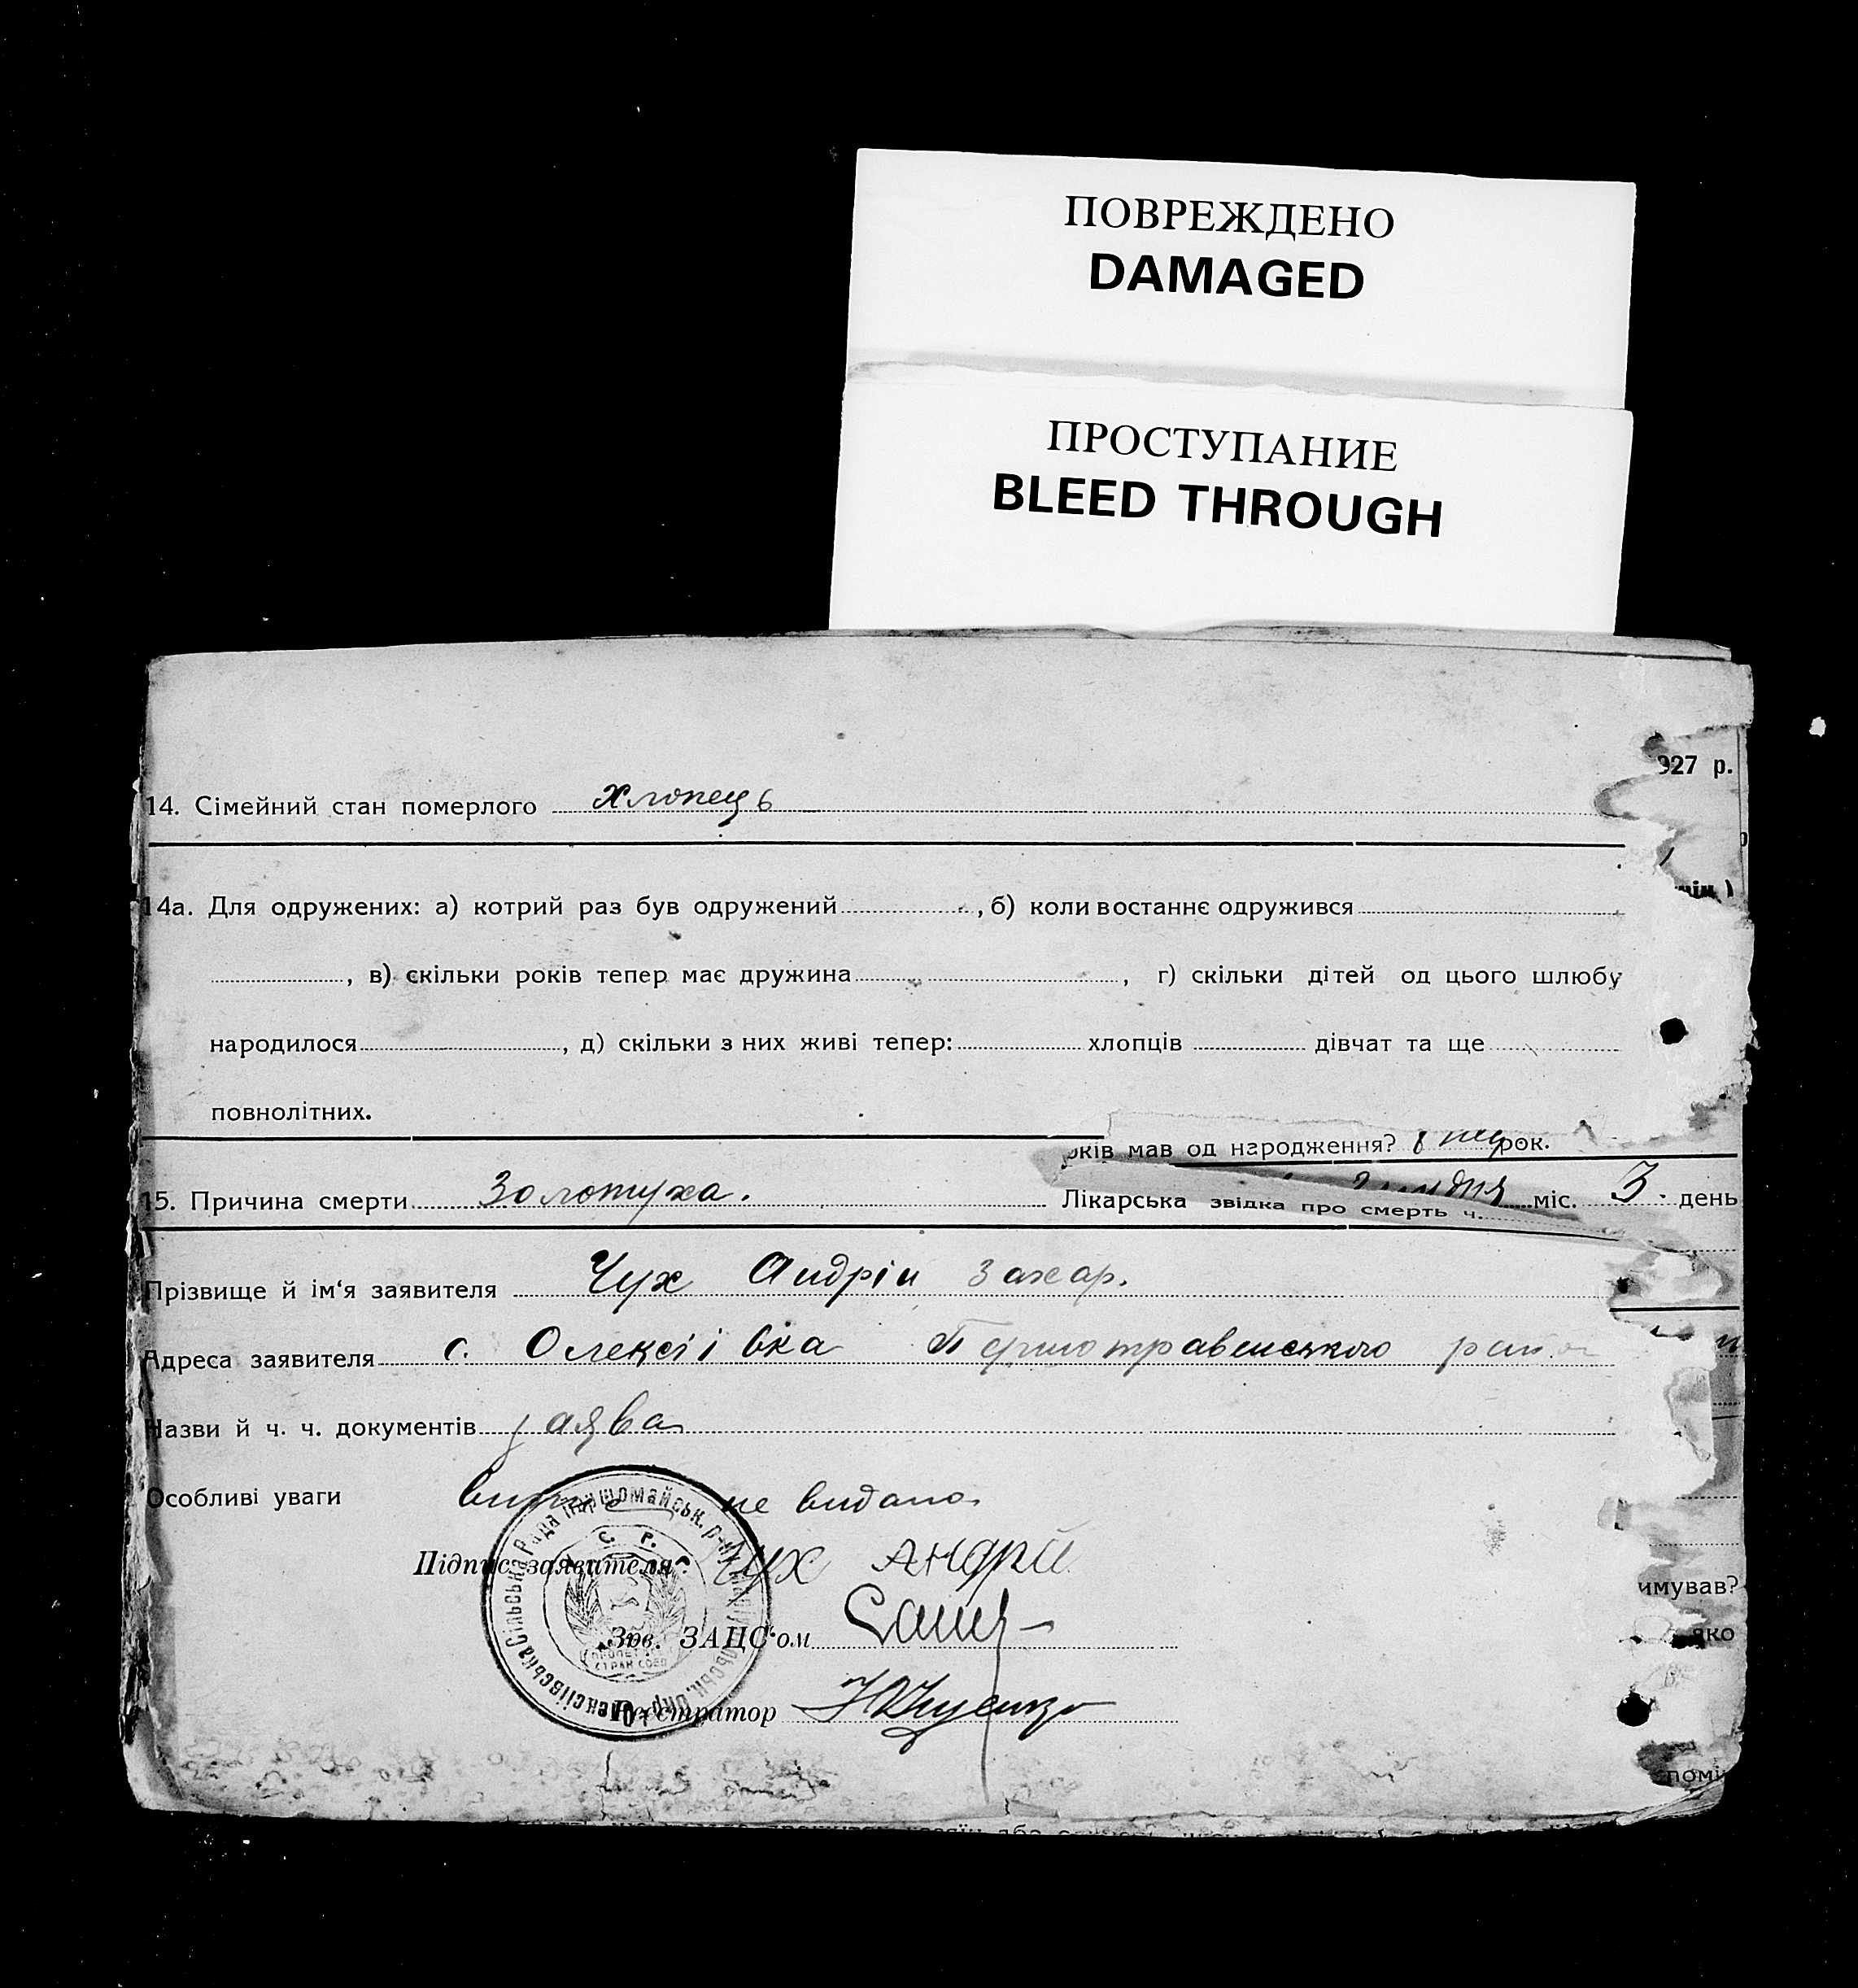 ПОВРЕЖДЕНО
DAMAGED
ПРОСТУПАНИЕ
BLEED THROUGH
927 р.
14. Сімейний стан померлого хлопець
14а. Для одружених: а) котрий раз був одружений , б) коли востаннє одружився
, в) скільки років тепер має дружина , г) скільки дітей од цього шлюбу
народилося , д) скільки з них живі тепер: хлопців дівчат та ще
повнолітних.
оків мав од народження? рок.
міс. 3. день
15. Причина смерти Золотуха. Лікарська звідка про смерть ч.
Прізвище й ім'я заявителя Чух Андрій Захар.
Адреса заявителя с. Олексіївка Першотравенського
Назви й ч. ч. документів заява
Особливі уваги не видано.
Підпис заявителя Чух Андрій
Зав. ЗАПС'ом
Реєстратор
Олексіївська Сільська Рада Першомайськ. р-
С. Р. Р.
имував?
яко